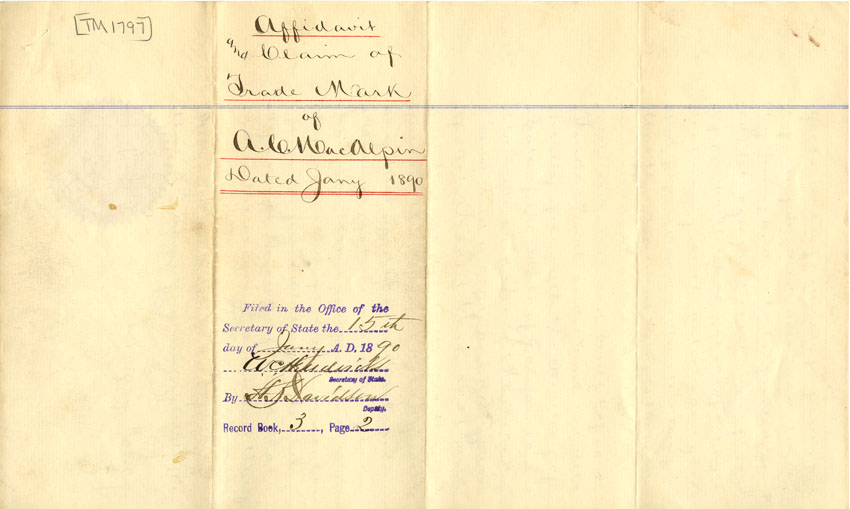 [TM1797]
Affidavit
and Claim of
Trade Mark
of
A.C. MacAlpin
Dated Jany 1890
Filed in the Office of the
Secretary of State the 15th
day of Jany A. D. 1890
E C Hendricks
Secretary of State.
By H. J. Davidson
Deputy.
Record Book, 3, Page 2